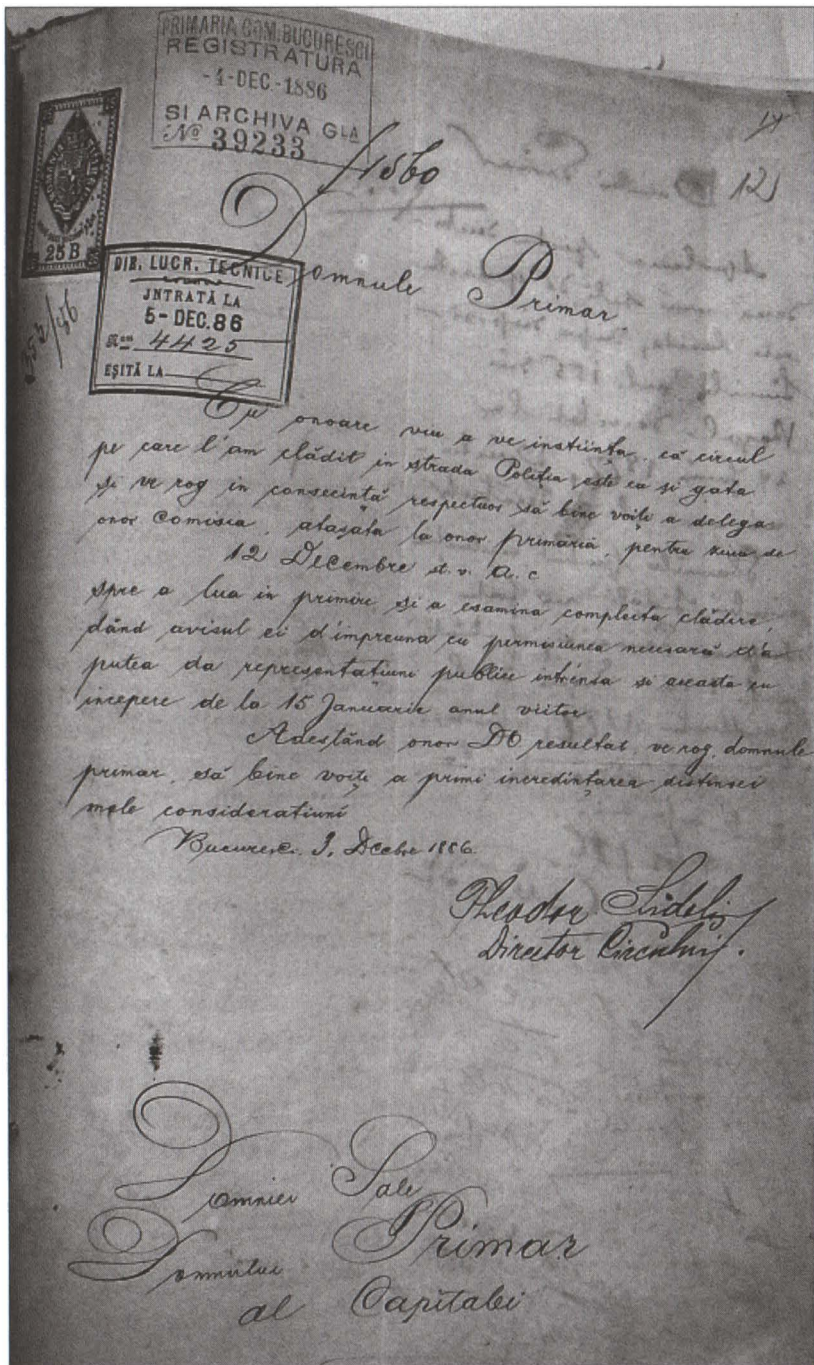 PRIMARIA COM. BUCURESCI
REGISTRATURA
-4-DEC-1886
SI ARCHIVA GLA
No 39233
1560
12
25 B
DIR. LUCR. TECNICE
JNTRATĂ LA
5-DEC.86
4425
EȘITĂ LA
Domnule Primar
Cu onoare viu a ve instiința, că circul
pe care l'am clădit in strada Poliția este ca și gata
și ve rog in consecință respectuos să bine voiți a delega
onor Comisia, atașata la onor primăria, pentru ziua de
12 Decembre st. v. a. c
spre a lua in primire și a esamina complecta clădire,
dând avisul ei d'impreuna cu permisiunea necesară d'a
putea da representatiuni publice intrénsa si aceasta cu
incepere de la 15 Januarie anul viitor
Adestănd onor resultat, ve rog, domnule
primar, să bine voiți a primi incredințarea distinsei
mele consideratiuni
Bucuresci. 3. Decbre 1886.
Theodor Sidoli
Director Circului.
Domniei Sale
Domnului Primar
al Capitalei